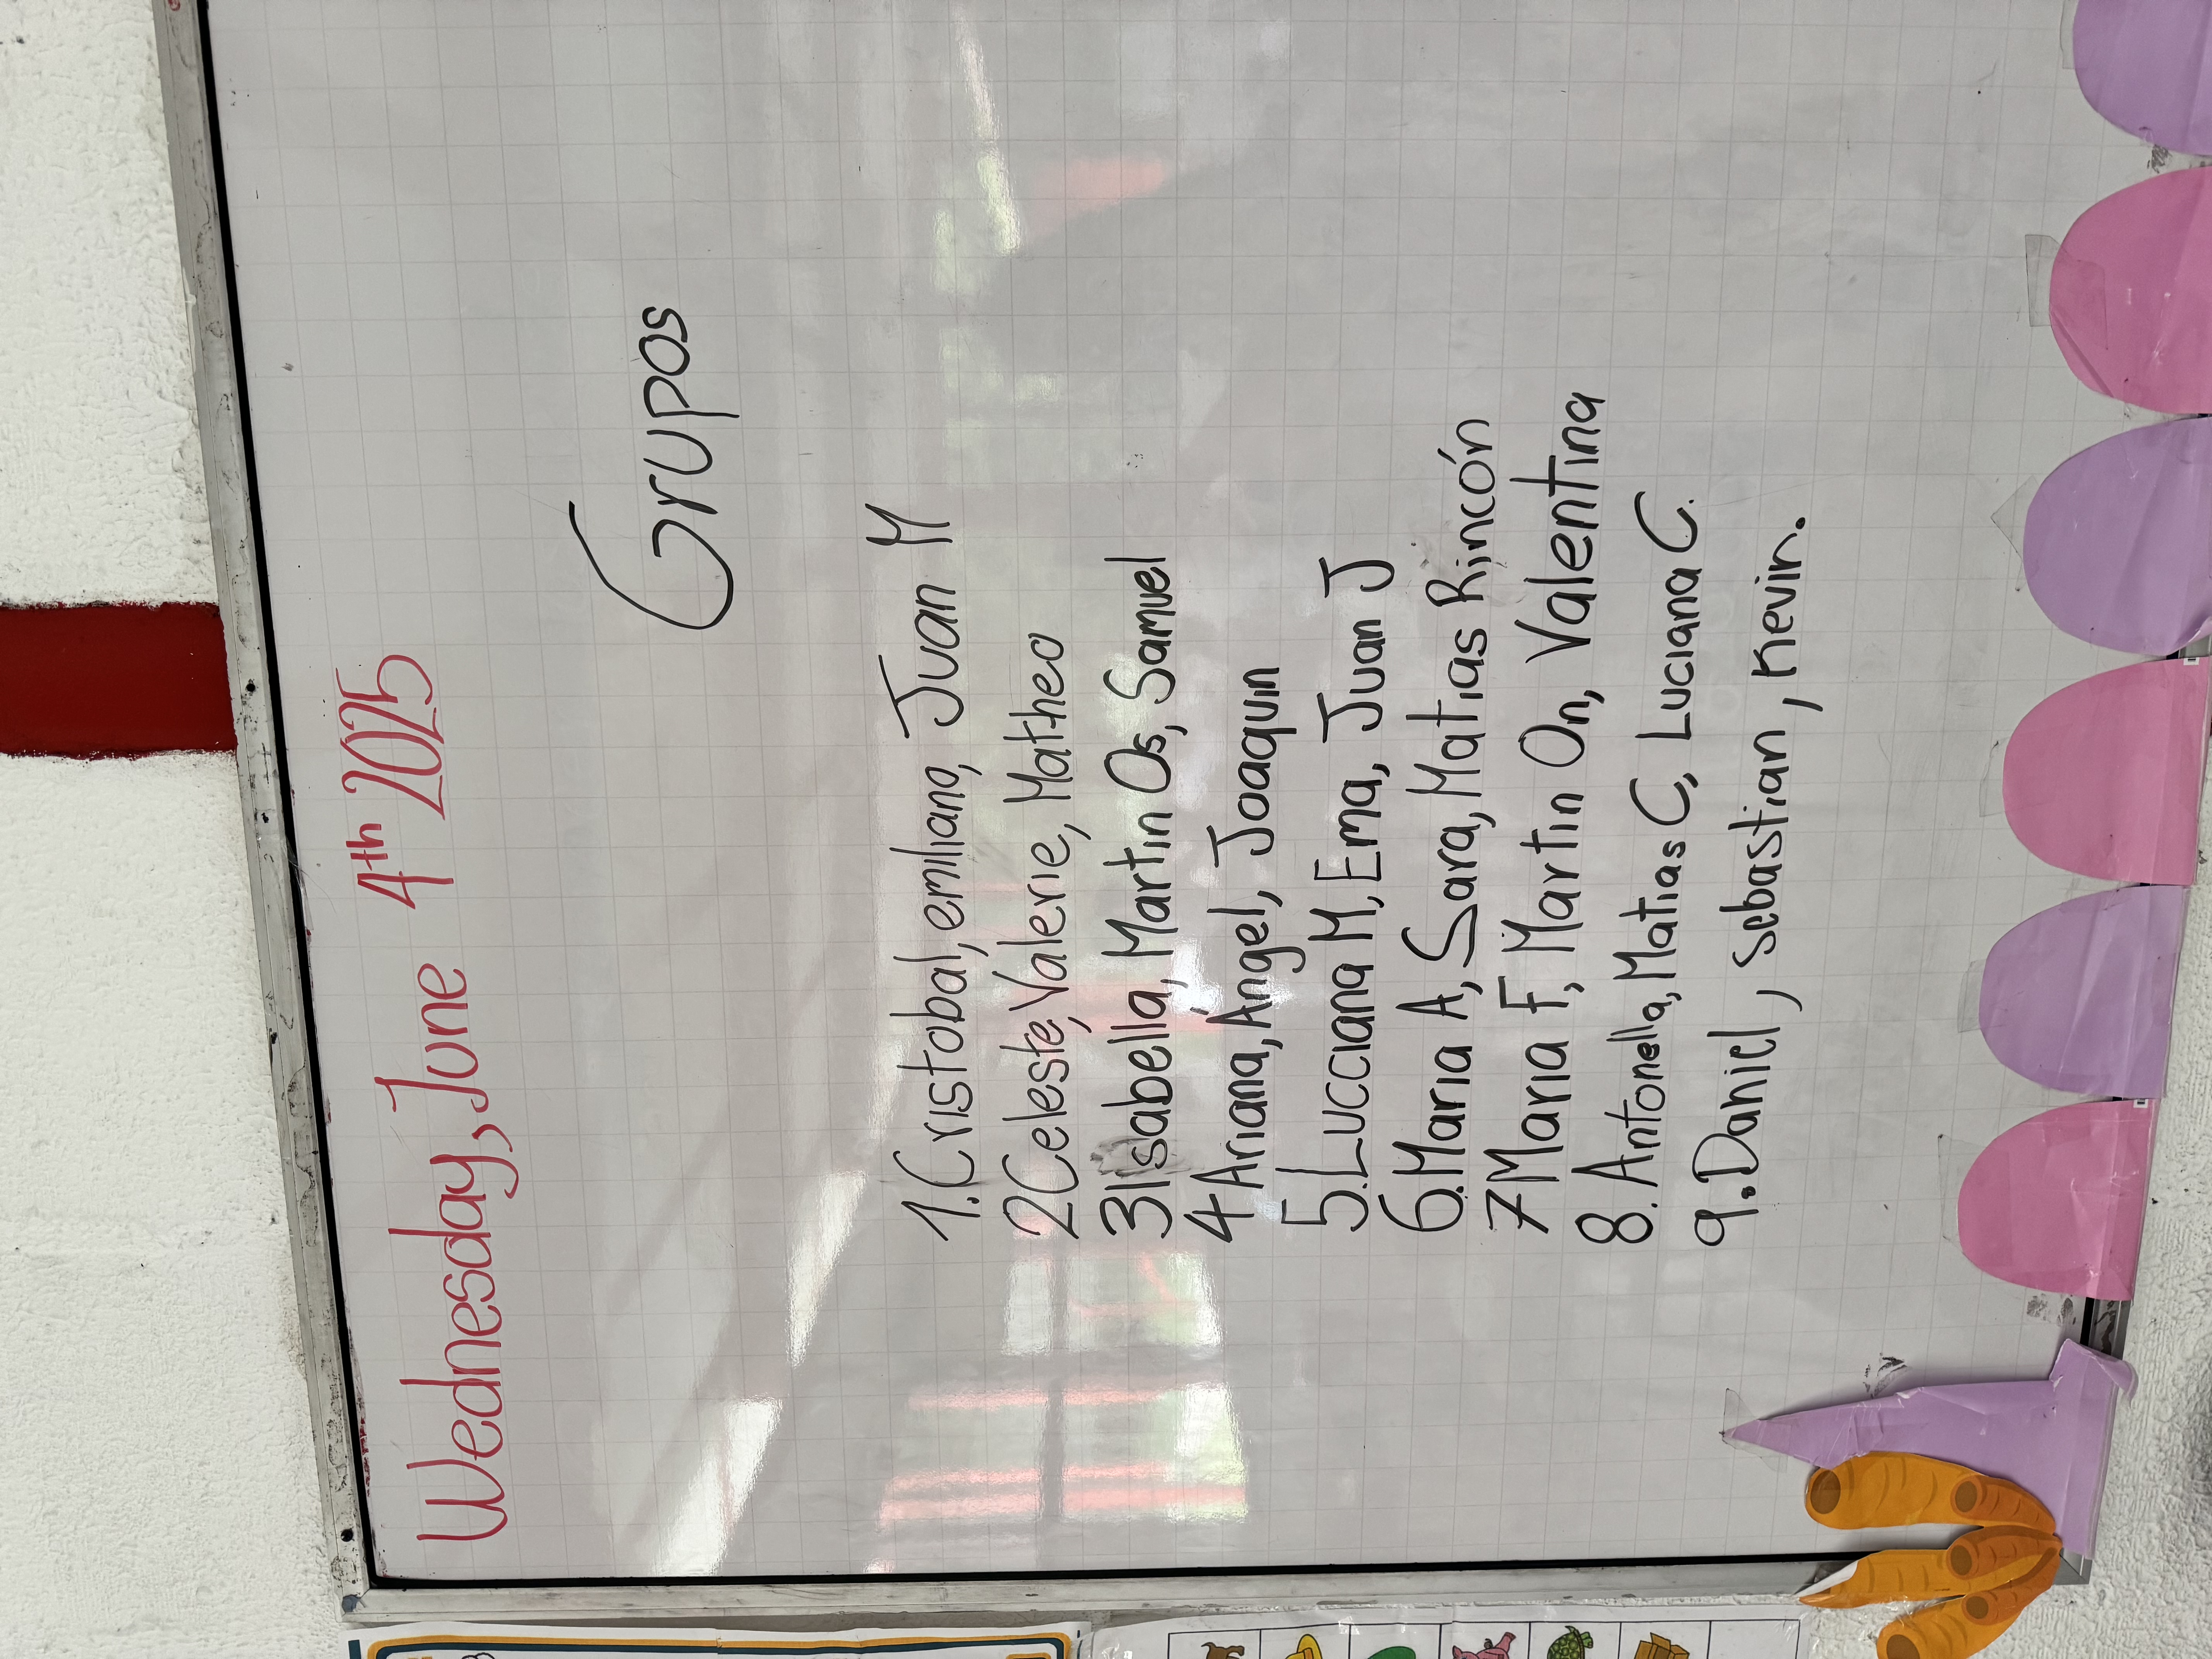 Wednesday, June 4th 2025
Grupos
1. Cristobal, emiliano, Juan M
2 Celeste, Valerie, Matheo
3 Isabella, Martin Os, Samuel
4 Ariana, Ángel, Joaquin
5. Lucciana M, Ema, Juan J
6. Maria A, Sara, Matias Rincón
7 Maria F, Martin On, Valentina
8. Antonella, Matias C, Luciana C.
9. Daniel, sebastian, Kevin.